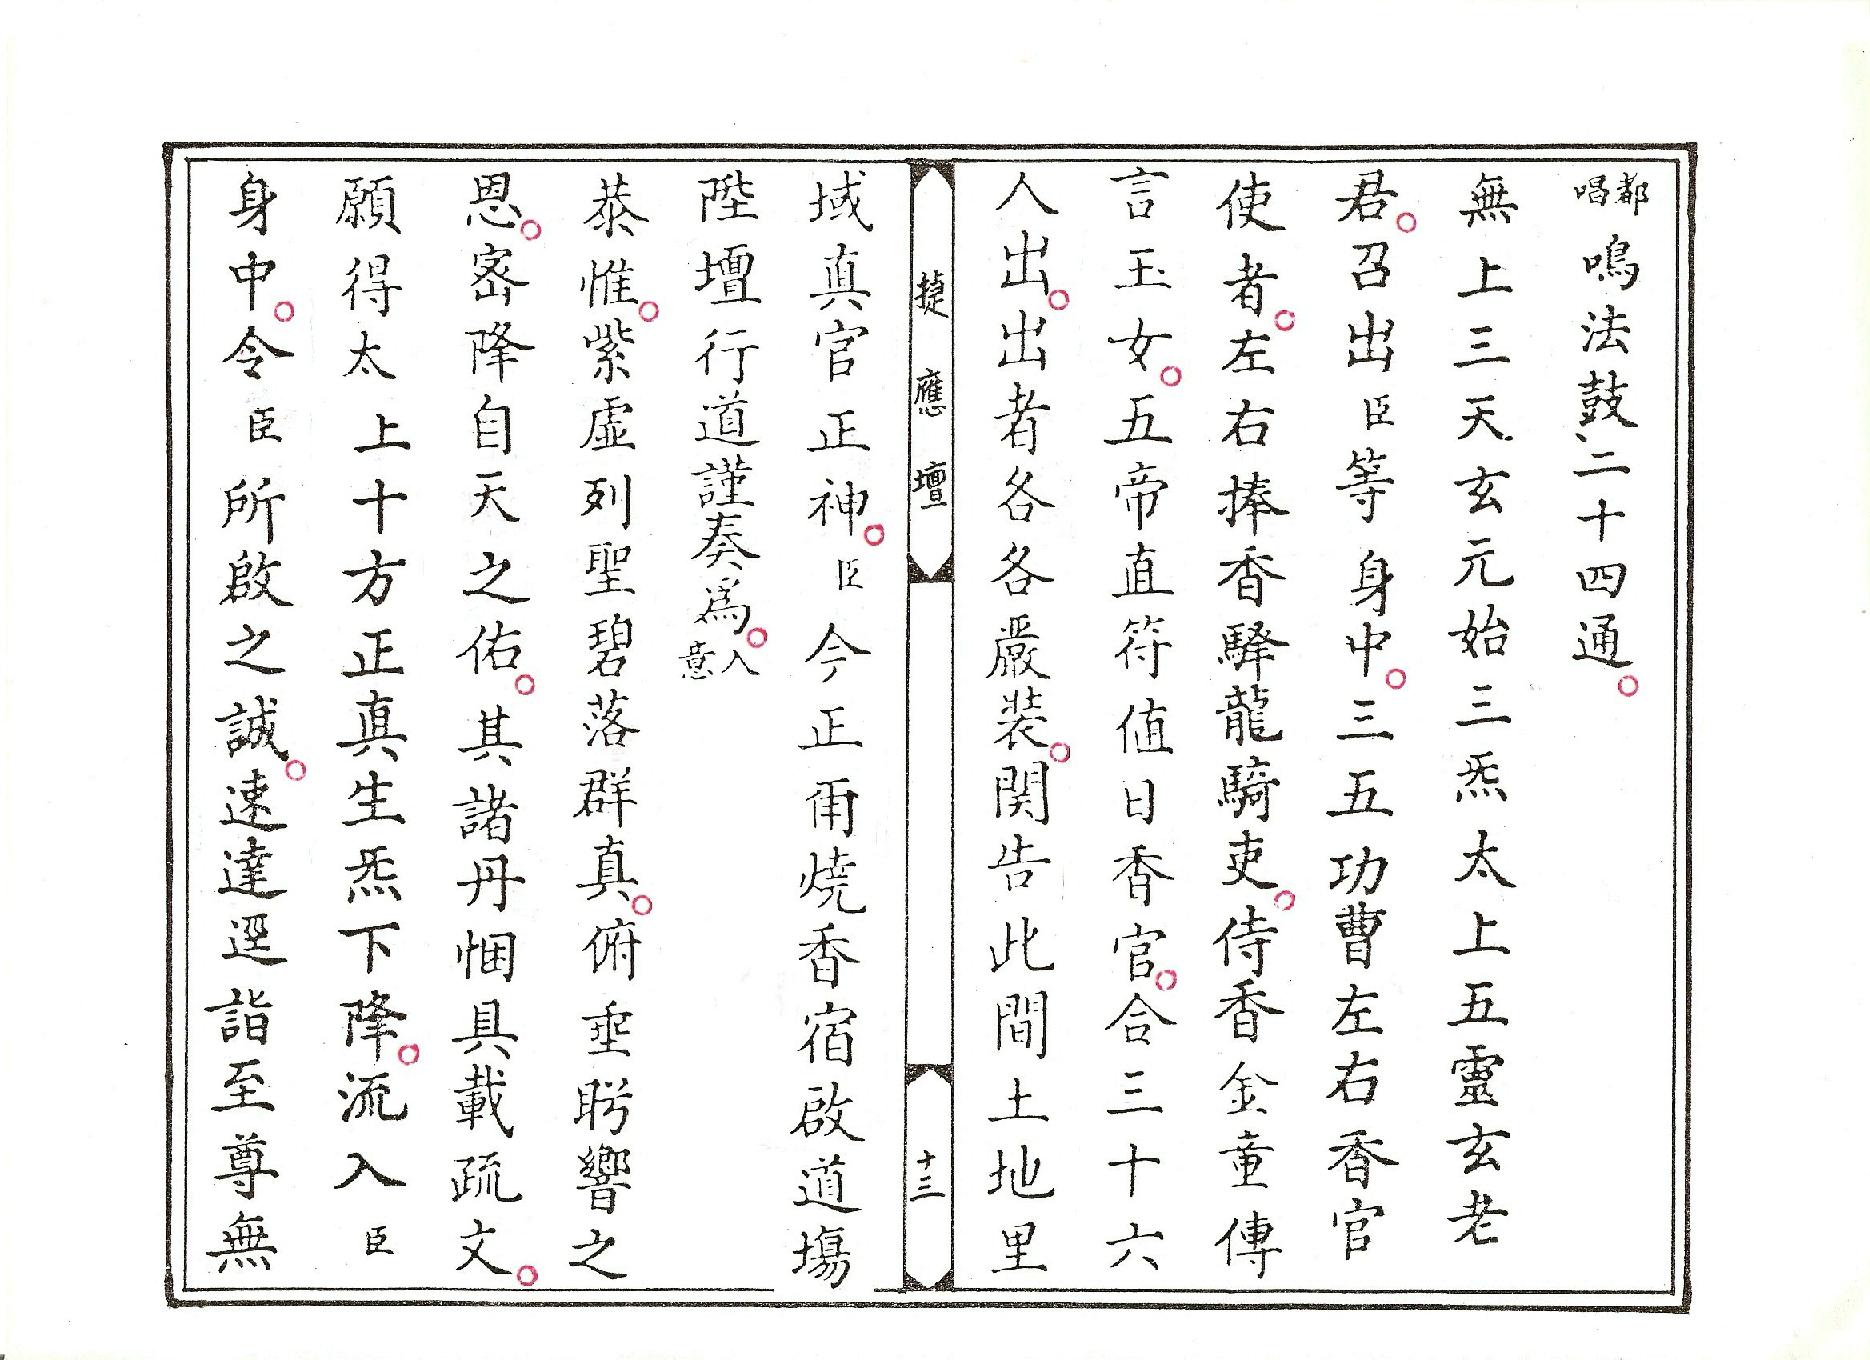 都唱鳴法鼓二十四通。
無上三天玄元始三炁太上五靈玄老
君。召出臣等身中。三五功曹左右香官
使者。左右捧香驛龍騎吏。侍香金童傳
言玉女。五帝直符值日香官。合三十六
人出。出者各各嚴装。関告此間土地里
捷應壇
十三
域真官正神。臣今正爾燒香宿啟道場
陞壇行道謹奏爲。入意
恭惟。紫虛列聖碧落群真。俯垂盻響之
恩。宻降自天之佑。其諸丹悃具載疏文。
願得太上十方正真生炁下降。流入臣
身中。令臣所啟之誠。速達逕詣至尊無